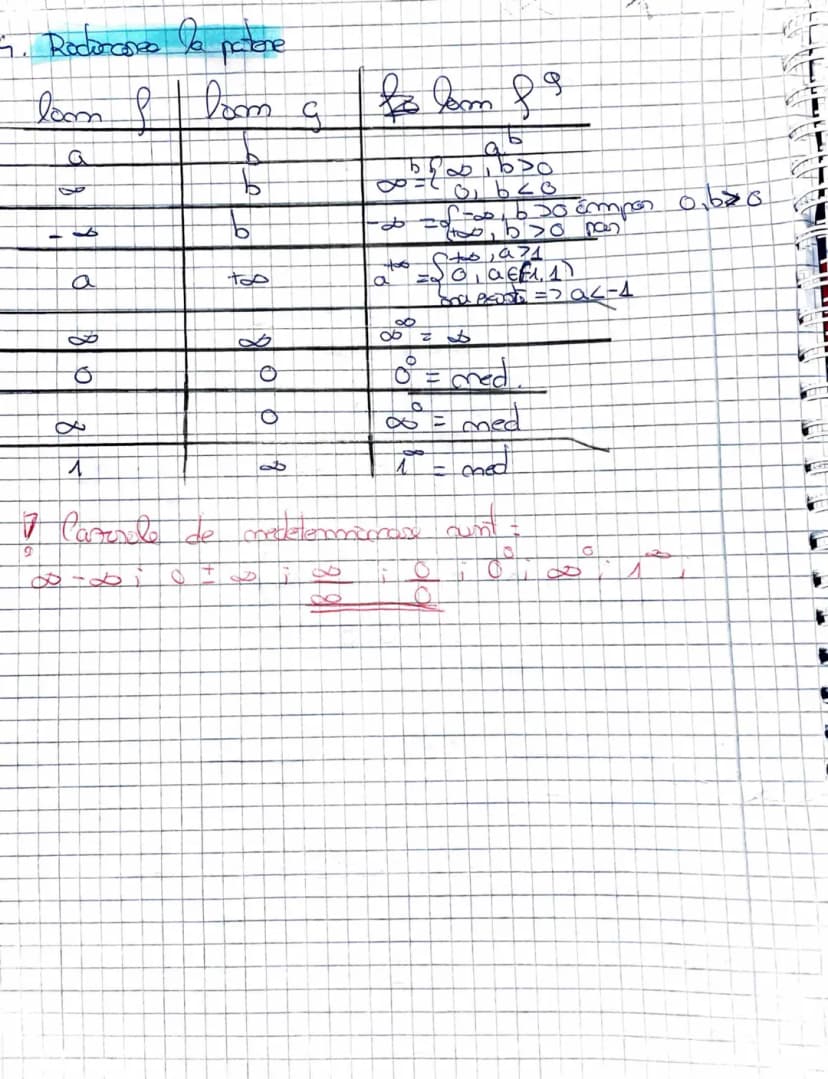 4. Ridicarea la putere
lim f | lim g | lim f^g
a | b | a^b
∞ | b | ∞^b = { ∞, b>0
0, b<0
-∞ | b | -∞ = { -∞, b>0 impar 0, b>0
+∞, b>0 par
a | +∞ | a^+∞ = { +∞, a>1
0, a∈(-1,1)
nu există => a<-1
∞ | ∞ | ∞^∞ = ∞
0 | 0 | 0^0 = ned.
∞ | 0 | ∞^0 = ned
1 | ∞ | 1^∞ = ned
! Cazurile de nedeterminare sunt:
∞-∞; 0 ± ∞; ∞/∞; 0/0; 0^0; ∞^0; 1^∞;